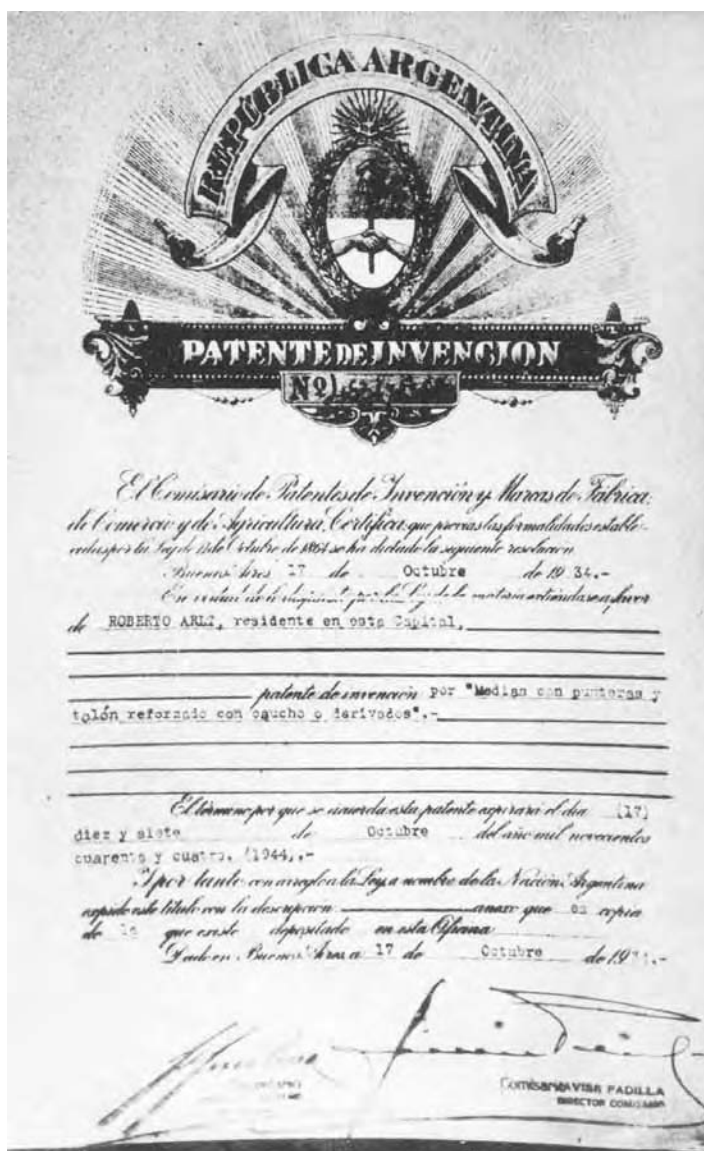 REPÚBLICA ARGENTINA
PATENTE DE INVENCION
Nº
El Comisario de Patentes de Invención y Marcas de Fábrica,
de Comercio y de Agricultura, Certifica que previas las formalidades estable-
cidas por la Ley de 11 de Octubre de 1864 se ha dictado la siguiente resolución
Buenos Aires 17 de Octubre de 1934.-
En virtud de lo dispuesto por la Ley de la materia extiéndase a favor
de ROBERTO ARLT, residente en esta Capital,
patente de invención por "Medias con punteras y
talón reforzado con caucho o derivados".-
El término por que se acuerda esta patente expirará el día (17)
diez y siete de Octubre del año mil novecientos
cuarenta y cuatro. (1944).-
Y por tanto con arreglo a la Ley, a nombre de la Nación Argentina
expido este título con la descripción anexo que es copia
de la que existe depositado en esta Oficina
Dado en Buenos Aires a 17 de Octubre de 1934.-
PADILLA
DIRECTOR